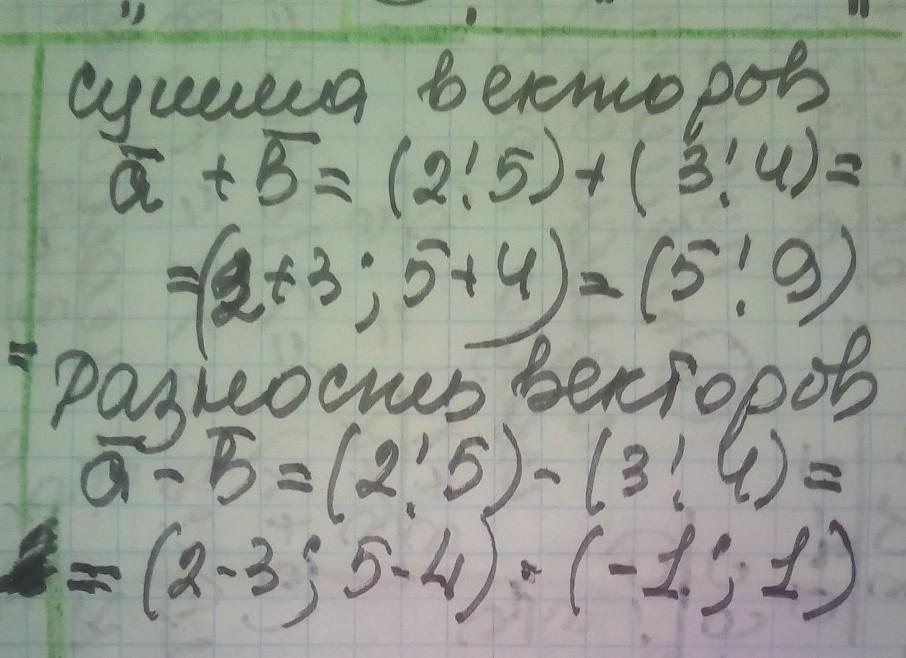 сумма векторов
a̅ + b̅ = (2; 5) + (3; 4) =
= (2+3; 5+4) = (5; 9)
Разность векторов
a̅ - b̅ = (2; 5) - (3; 4) =
= (2-3; 5-4) - (-1; 1)